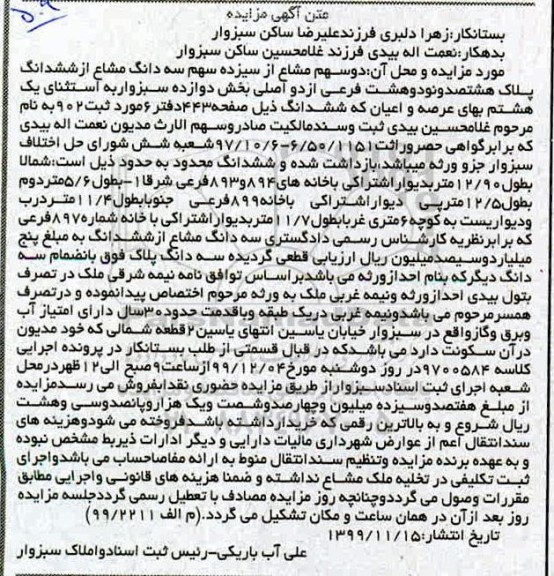 ۵۰۹
متن آگهی مزایده
بستانکار:زهرا دلبری فرزندعلیرضا ساکن سبزوار
بدهکار:نعمت اله بیدی فرزند غلامحسین ساکن سبزوار
مورد مزایده و محل آن:دوسهم مشاع از سیزده سهم سه دانگ مشاع ازششدانگ
پلاک هشتصدونودوهشت فرعی ازدو اصلی بخش دوازده سبزواربه استثنای یک
هشتم بهای عرصه و اعیان که ششدانگ ذیل صفحه۴۴۳دفتر۶مورد ثبت۹۰۲به نام
مرحوم غلامحسین بیدی ثبت وسندمالکیت صادروسهم الارث مدیون نعمت اله بیدی
که برابرگواهی حصروراثت۶/۵۰/۱۱۵۱-۹۷/۱۰/۶شعبه شش شورای حل اختلاف
سبزوار جزو ورثه میباشد،بازداشت شده و ششدانگ محدود به حدود ذیل است:شمالا
بطول۱۲/۹۰متربدیواراشتراکی باخانه های۸۹۴و۸۹۳فرعی شرقا۱-بطول۵/۶متردوم
بطول۱۲/۵مترپی دیواراشتراکی باخانه۸۹۹فرعی جنوبابطول۱۱/۴متردرب
ودیواریست به کوچه۶متری غربابطول۱۱/۷متربدیواراشتراکی با خانه شماره۸۹۷فرعی
که برابرنظریه کارشناس رسمی دادگستری سه دانگ مشاع ازششدانگ به مبلغ پنج
میلیاردوسیصدمیلیون ریال ارزیابی قطعی گردیده سه دانگ پلاک فوق بانضمام سه
دانگ دیگرکه بنام احدازورثه می باشدبراساس توافق نامه نیمه شرقی ملک در تصرف
بتول بیدی احدازورثه ونیمه غربی ملک به ورثه مرحوم اختصاص پیدانموده و درتصرف
همسرمرحوم می باشدونیمه غربی دریک طبقه وباقدمت حدود۳۰سال دارای امتیاز آب
وبرق وگازواقع در سبزوار خیابان یاسین انتهای یاسین۲قطعه شمالی که خود مدیون
درآن سکونت دارد می باشدکه در قبال قسمتی از طلب بستانکار در پرونده اجرایی
کلاسه ۹۷۰۰۵۸۴در روز دوشنبه مورخ۹۹/۱۲/۰۴ازساعت۹صبح الی۱۲ظهردرمحل
شعبه اجرای ثبت اسنادسبزواراز طریق مزایده حضوری نقدابفروش می رسدمزایده
از مبلغ هفتصدوسیزده میلیون وچهارصدوشصت ویک هزاروپانصدوسی وهشت
ریال شروع و به بالاترین رقمی که خریدارداشته باشدفروخته می شودوهزینه های
سندانتقال اعم از عوارض شهرداری مالیات دارایی و دیگر ادارات ذیربط مشخص نبوده
و به عهده برنده مزایده وتنظیم سندانتقال منوط به ارائه مفاصاحساب می باشدواجرای
ثبت تکلیفی در تخلیه ملک مشاع نداشته و ضمنا هزینه های قانونی واجرایی مطابق
مقررات وصول می گرددوچنانچه روز مزایده مصادف با تعطیل رسمی گرددجلسه مزایده
روز بعد ازآن در همان ساعت و مکان تشکیل می گردد.(م الف ۹۹/۲۲۱۱)
تاریخ انتشار:۱۳۹۹/۱۱/۱۵
علی آب باریکی-رئیس ثبت اسنادواملاک سبزوار